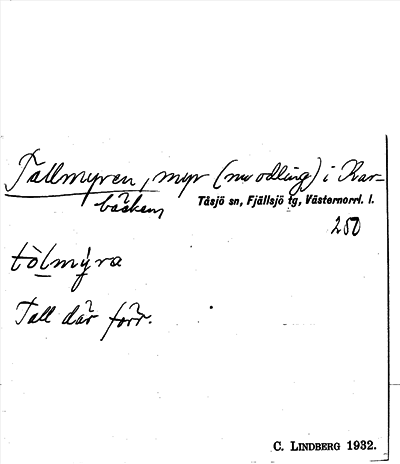 Tallmyren, myr (nu odling) i Kar-
bäcken
Tåsjö sn, Fjällsjö tg, Västernorrl. l.
250
tòlmýra
Tall där förr.
C. LINDBERG 1932.